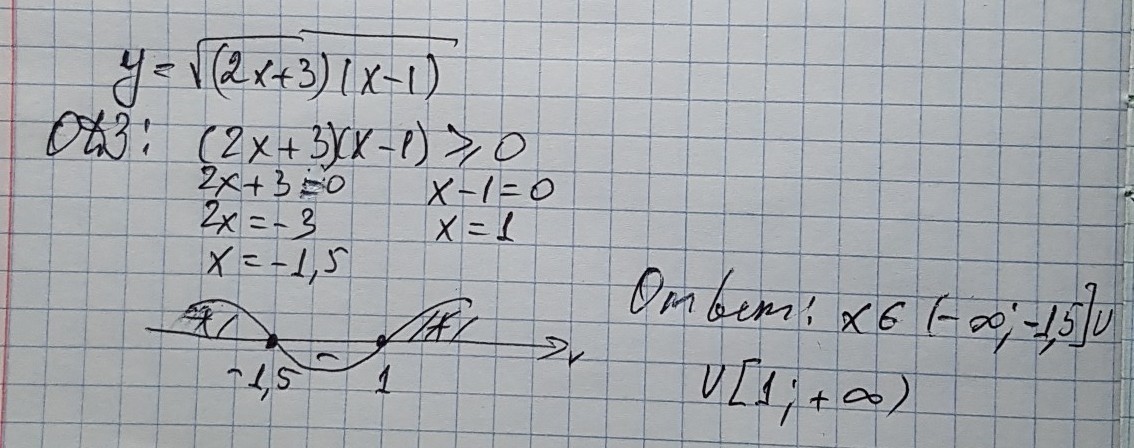 y = √(2x+3)(x-1)
ОДЗ: (2x+3)(x-1) ⩾ 0
2x+3=0 x-1=0
2x=-3 x=1
x=-1,5
+ - +
-1,5 1 x
Ответ: x∈(-∞;-1,5]U
U[1;+∞)